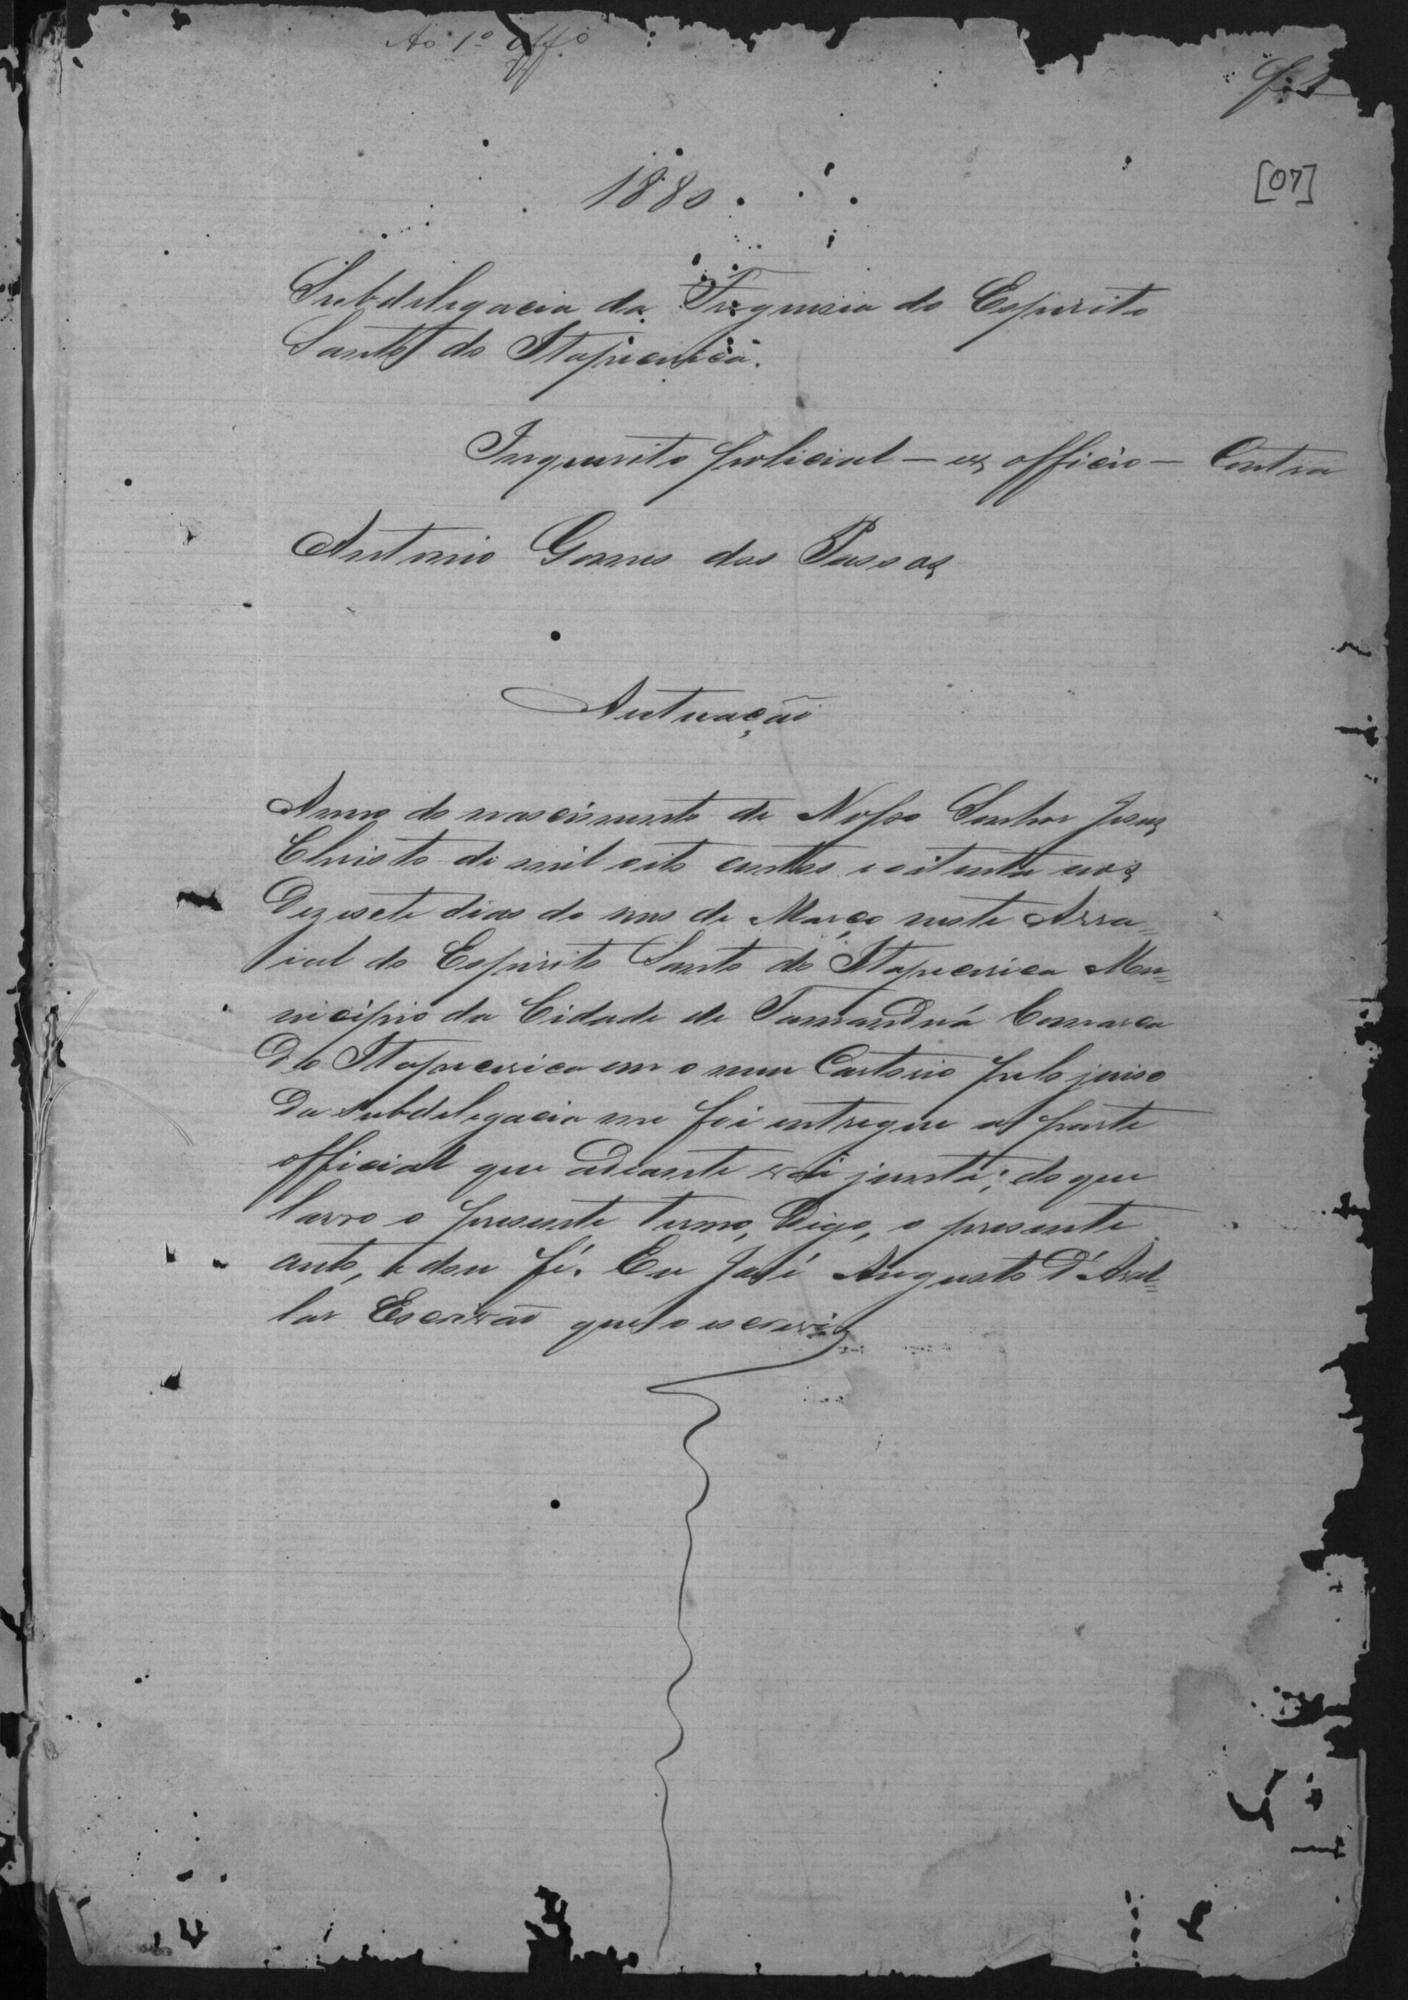 Ao 1º Offº
fs 1
[07]
1880.
Subdelegacia da Freguesia do Espirito
Santo do Itapecerica.
Inquerito policial — ex officio — Contra
Antonio Gomes dos Passos
Autuação
Anno do nascimento de Nosso Senhor Jesus
Christo de mil oito centos e oitenta aos
Dezesete dias do mes de Março neste Arra-
ial do Espirito Santo do Itapecerica Mu=
nicipio da Cidade de Tamanduá Comarca
Do Itapecerica em o meu Cartorio pelo juiso
Da subdelegacia me foi entregue a parte
official que adeante vai junta; do que
lavro o presente termo, Digo, o presente
auto, e dou fé. Eu José Augusto D'
Escrivão que o escrevi